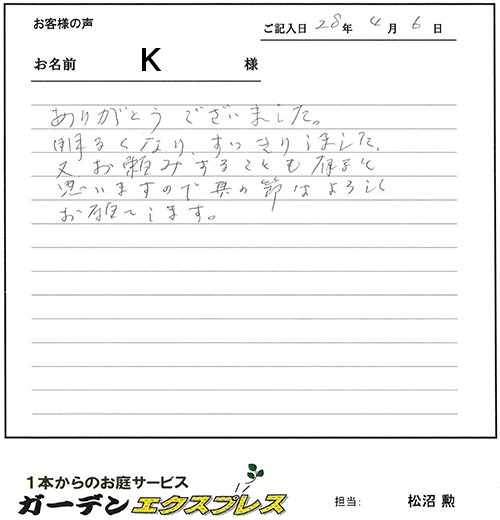 お客様の声
ご記入日 28年 4月 6日
お名前 K 様
ありがとうございました。
明るくなり、すっきりしました。
又お頼みすることも有ると
思いますので其の節はよろしく
お願いします。
1本からのお庭サービス
ガーデンエクスプレス
担当: 松沼 勲